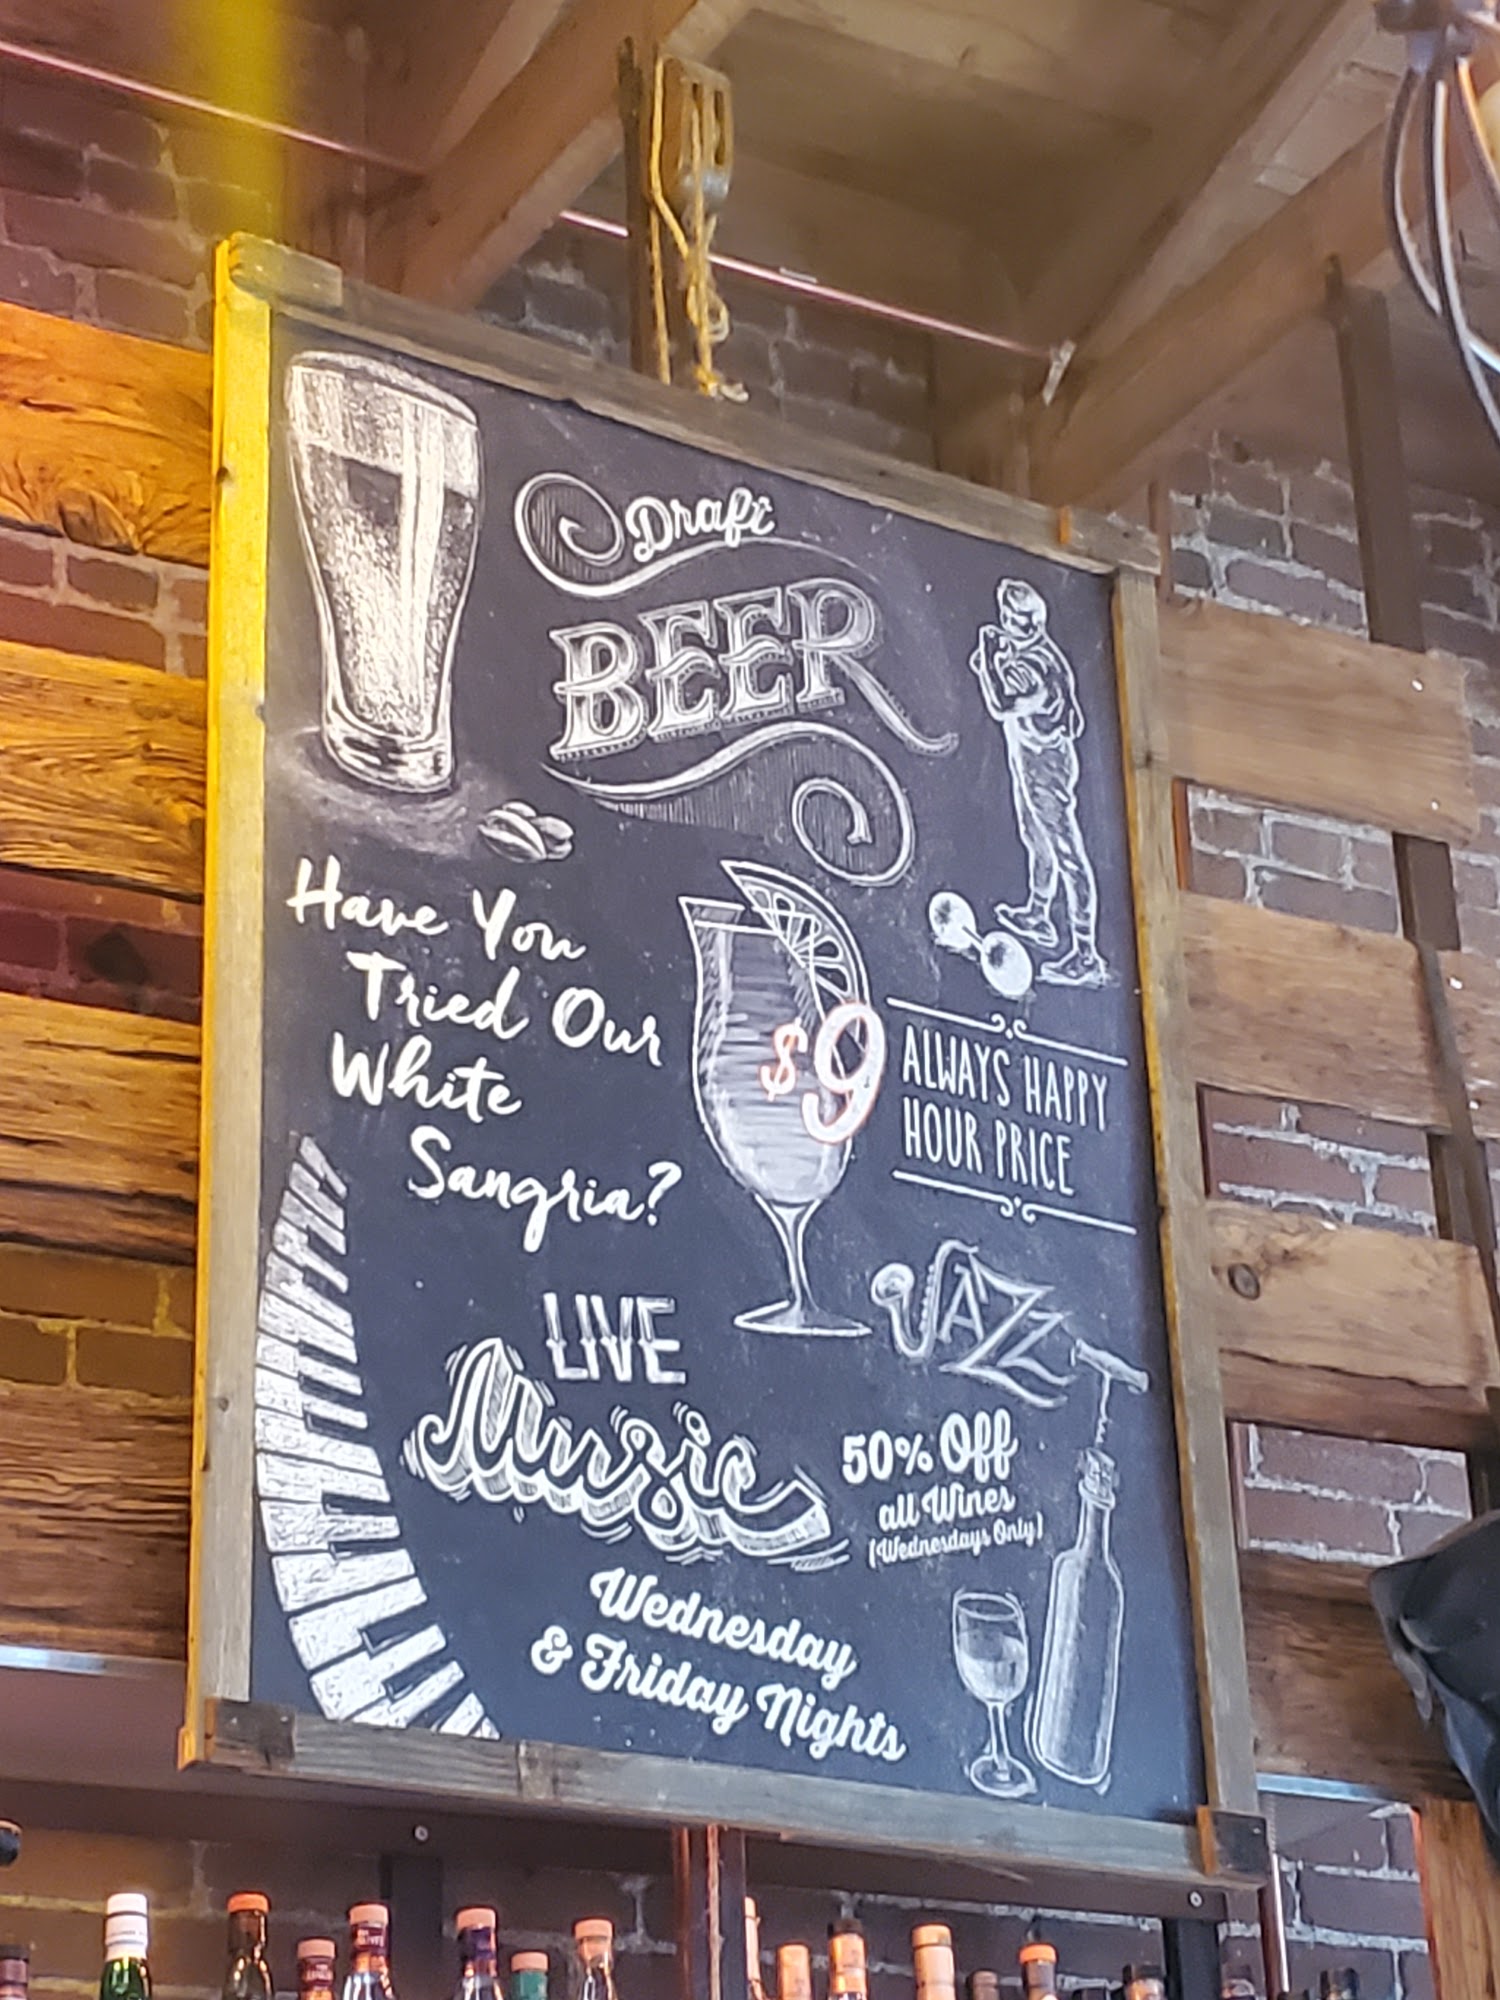 Draft
BEER
Have You
Tried Our
White
Sangria?
$9
ALWAYS HAPPY
HOUR PRICE
JAZZ
LIVE
Music
Wednesday
& Friday Nights
50% Off
all Wines
(Wednesdays Only)